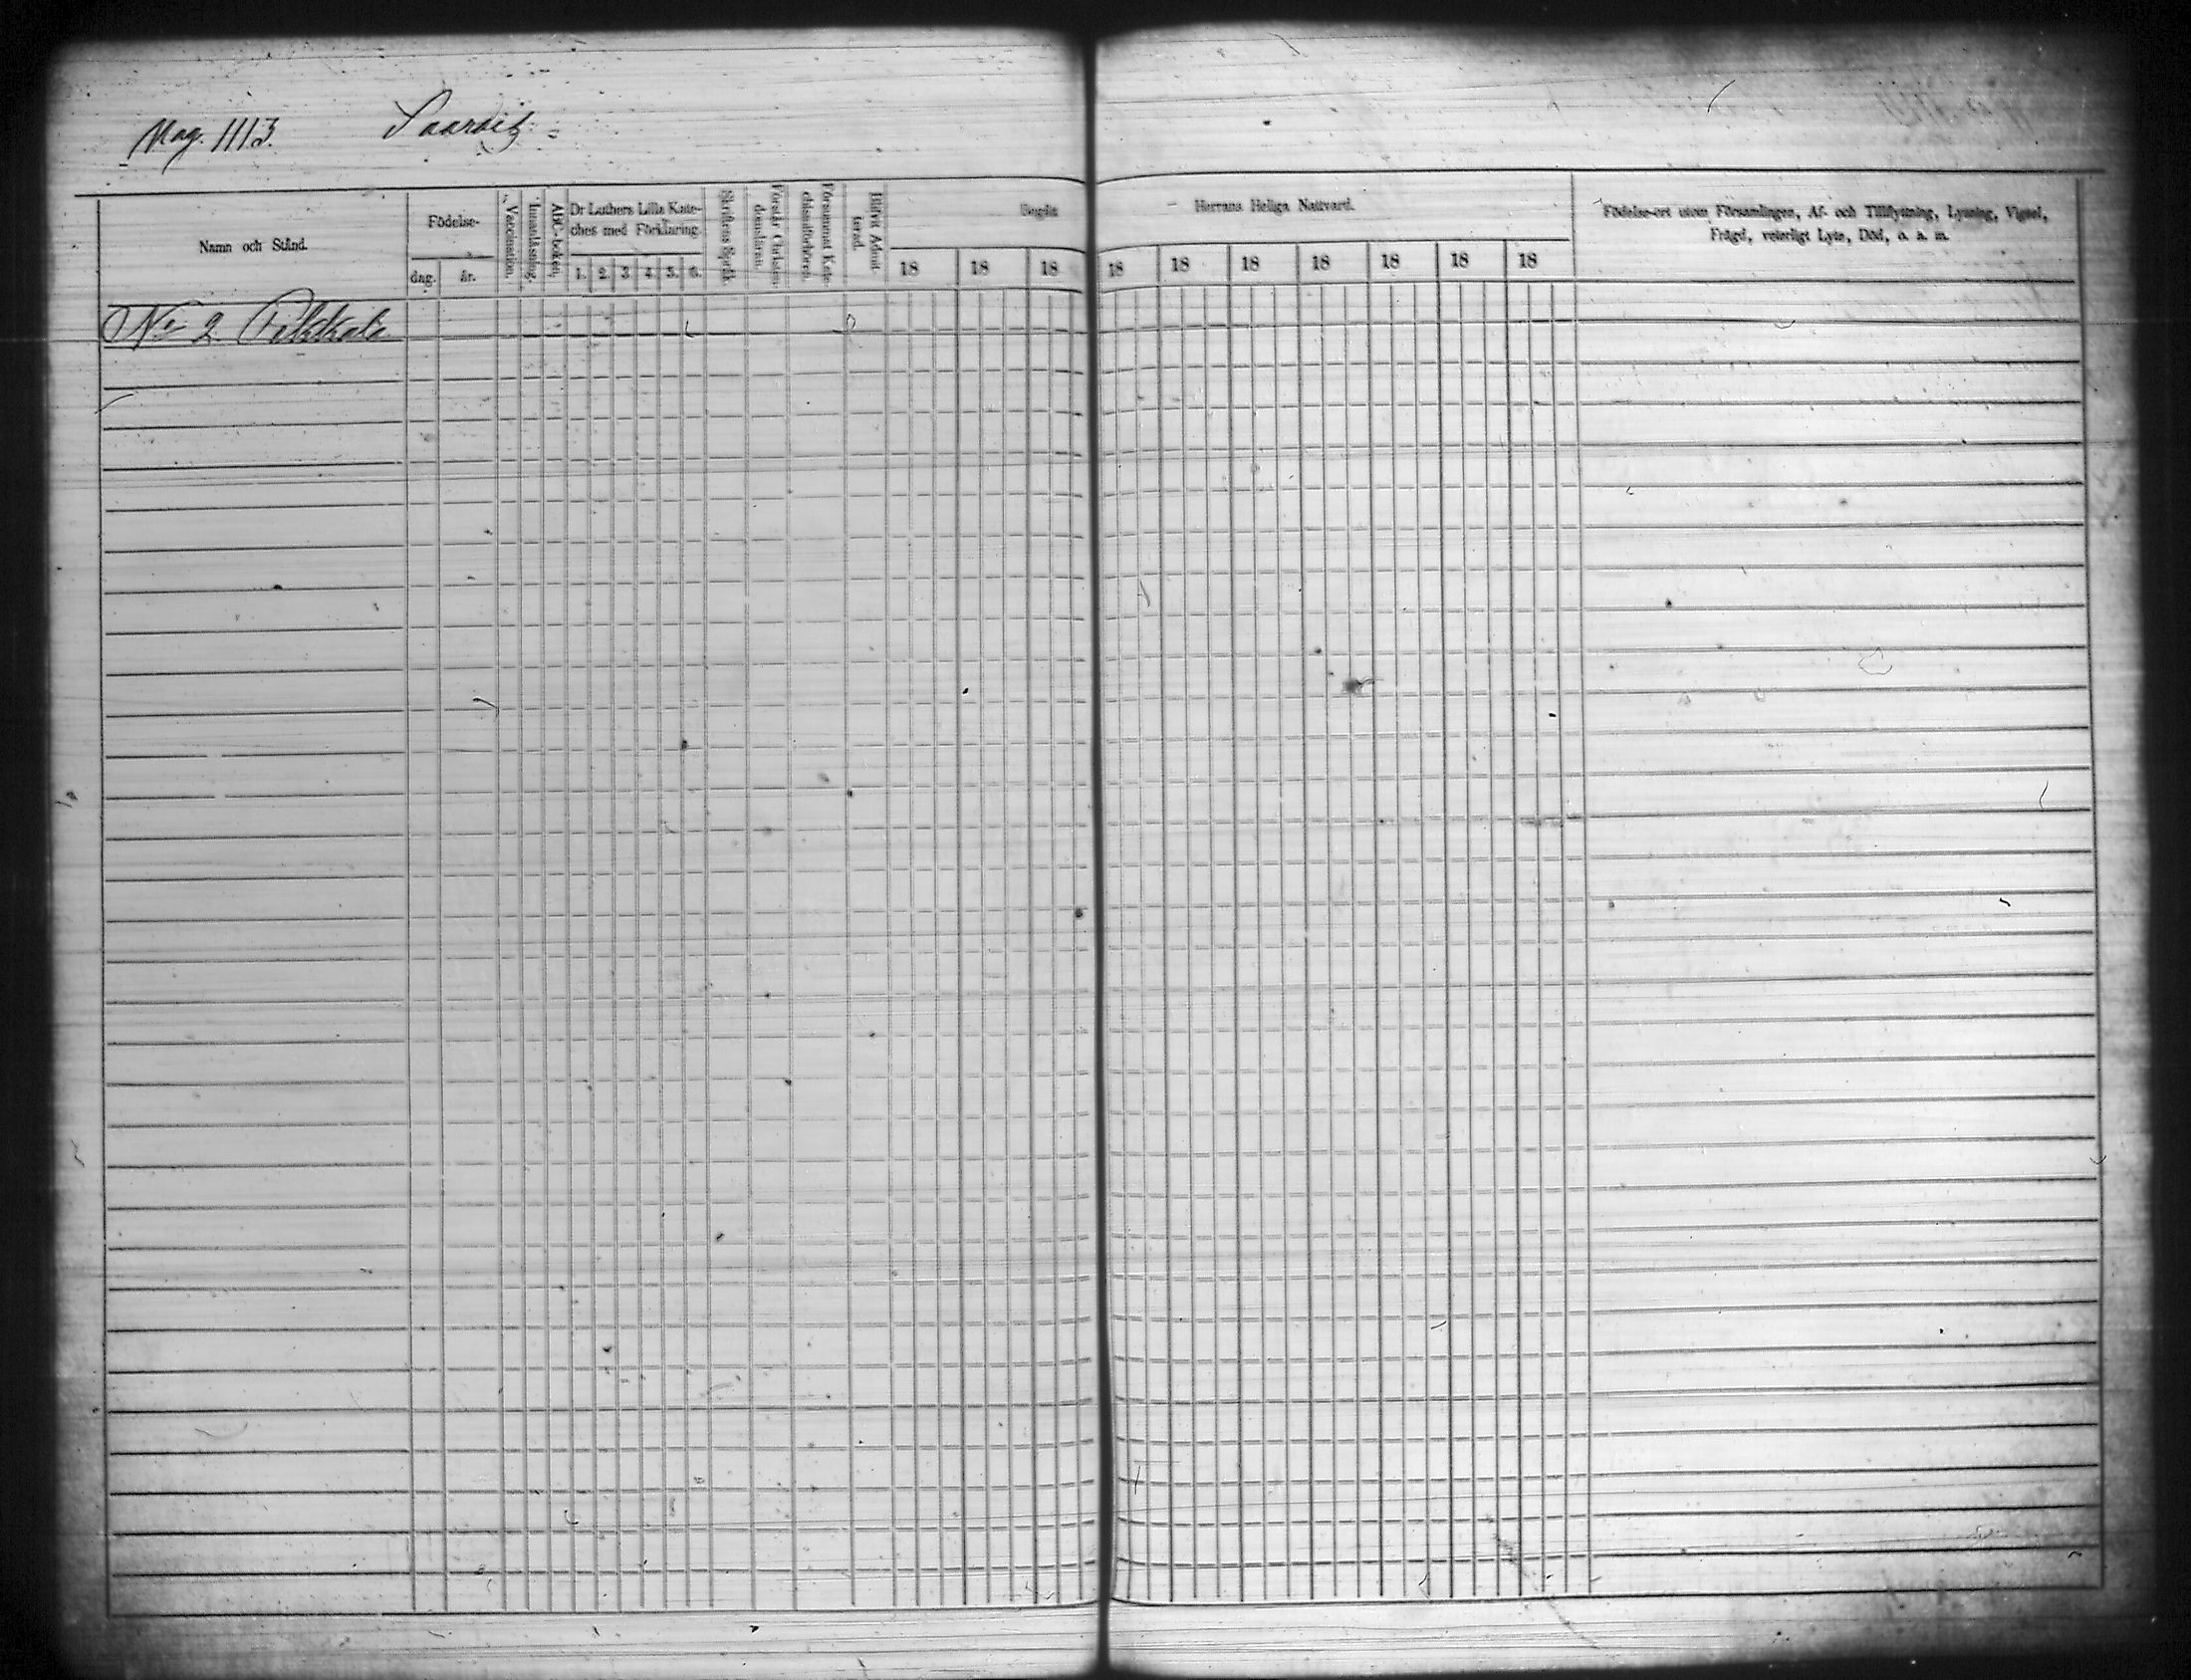 Mag. 1113. Saarois
Namn och Stånd.
Födelse-
dag.
år.
Vaccination.
Innanläsning.
ABC-boken.
Dr Luthers Lilla Kate-
ches med Förklaring.
1. 2. 3. 4. 5. 6.
Skriftens Språk.
Förstår Christen-
domsläran.
Försummat Kate-
chismiförhören.
Blifvit Admit-
terad.
Begått Herrans Heliga Nattvard.
18 18 18 18 18 18 18 18 18 18
Födelse-ort utom Församlingen, Af- och Tillflyttning, Lysning, Vigsel,
Frägd, veterligt Lyte, Död, o. a. m.
No 2 Pikkala